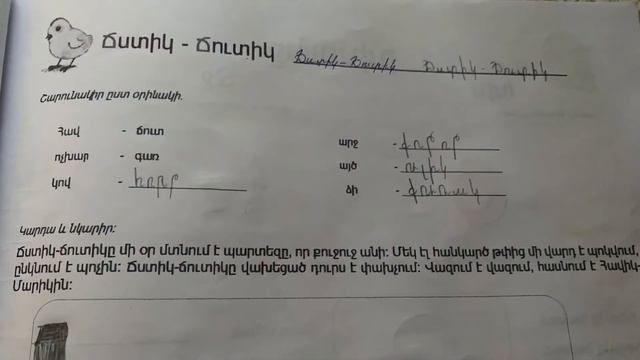 Ճստիկ - Ճուտիկ Ճստիկ - Ճուտիկ Ճստիկ - Ճուտիկ
Շարունակիր ըստ օրինակի.
Հավ - ճուտ
ոչխար - գառ
կով - հորթ
արջ -
այծ - ուլիկ
ձի - քուռակ
Կարդա և նկարիր:
Ճստիկ-ճուտիկը մի օր մտնում է պարտեզը, որ քուջուջ անի: Մեկ էլ հանկարծ թփից մի վարդ է պոկվում,
ընկնում է պոչին: Ճստիկ-ճուտիկը վախեցած դուրս է փախչում: Վազում է վազում, հասնում է Հավիկ-
Մարիկին: